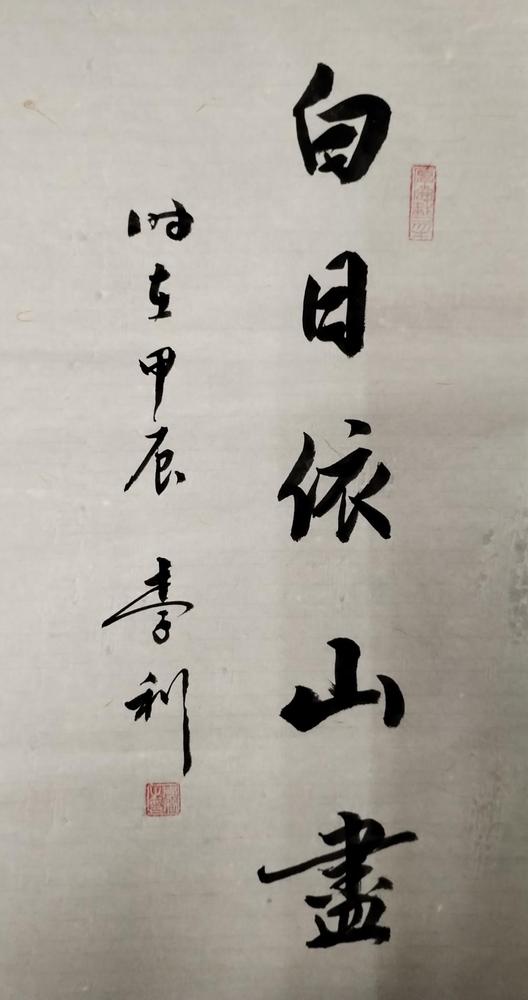 白日依山盡
时在甲辰 李利